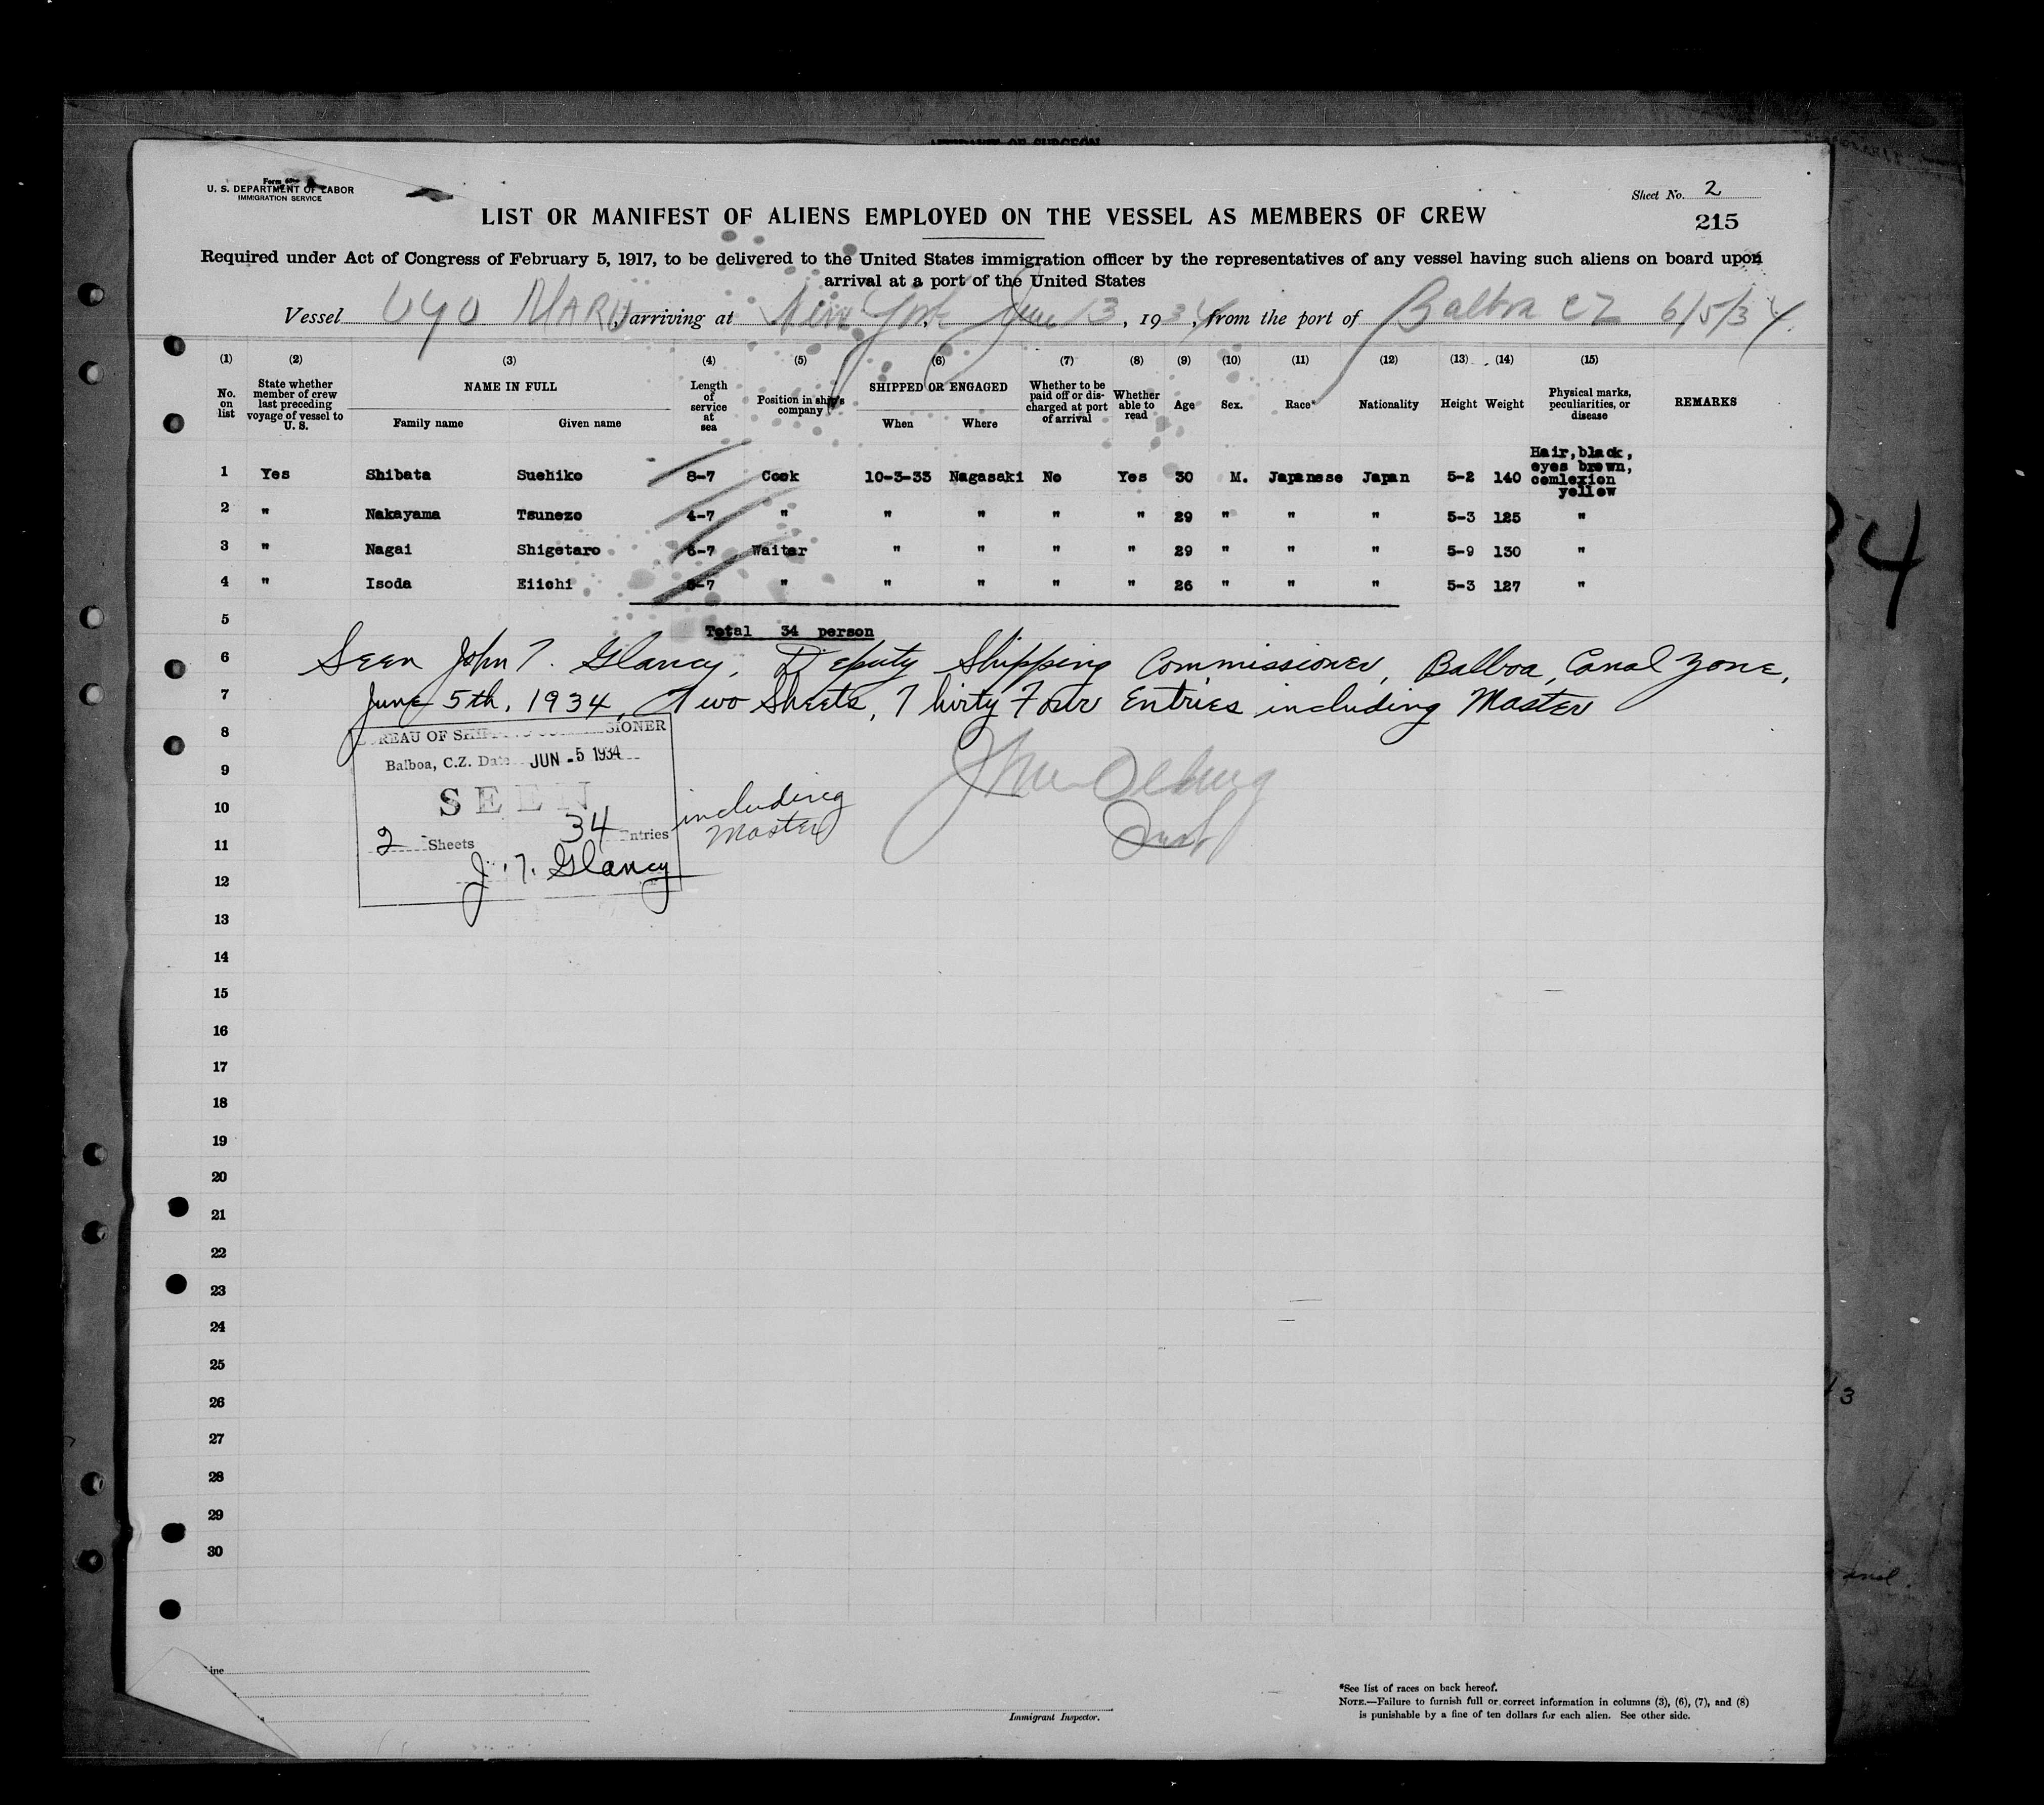 AFFIDAVIT OF SURGEON
Form
U. S. DEPARTMENT OF LABOR
IMMIGRATION SERVICE
Sheet No. 2
215
LIST OR MANIFEST OF ALIENS EMPLOYED ON THE VESSEL AS MEMBERS OF CREW
Required under Act of Congress of February 5, 1917, to be delivered to the United States immigration officer by the representatives of any vessel having such aliens on board upon
arrival at a port of the United States
Vessel UYO MARU, arriving at New York, June 13, 1934, from the port of Balboa CZ 6/5/34.
(1) (2) (3) (4) (5) (6) (7) (8) (9) (10) (11) (12) (13) (14) (15)
No. on list State whether member of crew last preceding voyage of vessel to U. S. NAME IN FULL Family name Given name Length of service at sea Position in ship's company SHIPPED OR ENGAGED When Where Whether to be paid off or discharged at port of arrival Whether able to read Age Sex. Race* Nationality Height Weight Physical marks, peculiarities, or disease REMARKS
1 Yes Shibata Suehiko 8-7 Cook 10-3-33 Nagasaki No Yes 30 M. Japanese Japan 5-2 140 Hair, black, eyes brown, comlexion yellow
2 " Nakayama Tsunezo 4-7 " " " " " 29 " " " 5-3 125 "
3 " Nagai Shigetaro 6-7 Waiter " " " " 29 " " " 5-9 130 "
4 " Isoda Eiichi -7 " " " " " 26 " " " 5-3 127 "
5
Total 34 person
6 Seen John T. Glancy, Deputy Shipping Commissioner, Balboa, Canal Zone,
7 June 5th, 1934, Two Sheets, Thirty Four Entries including Master
8
BUREAU OF SHIPPING COMMISSIONER
Balboa, C.Z. Date JUN -5 1934
9
SEEN
10
2 Sheets 34 Entries including Master
11
J. T. Glancy
12
13
14
15
16
17
18
19
20
21
22
23
24
25
26
27
28
29
30
Line
Immigrant Inspector.
*See list of races on back hereof.
NOTE.—Failure to furnish full or correct information in columns (3), (6), (7), and (8)
is punishable by a fine of ten dollars for each alien. See other side.